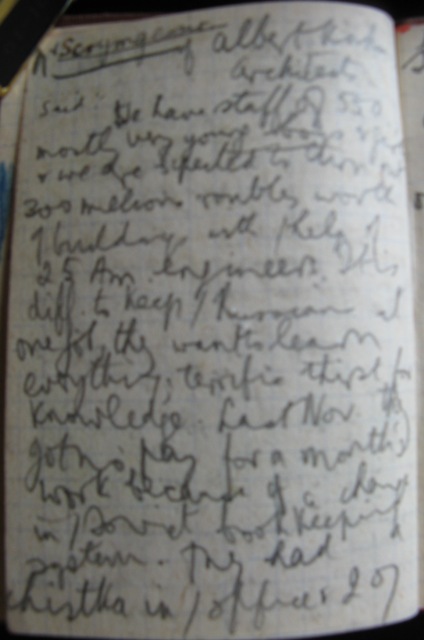 A Scrymgeour of Albert Kahn
Architects
said We have staff of 550
mostly very young boys &
& we are expected to throw
300 millions roubles worth
of buildings with / help of
25 Am. engineers. It is
diff. to keep / Russians at
one job, they want to learn
everything, terrific thirst for
knowledge. Last Nov they
got no pay for a month's
work because of a change
in / Soviet bookkeeping
system. They had a
chistka in / office & 207